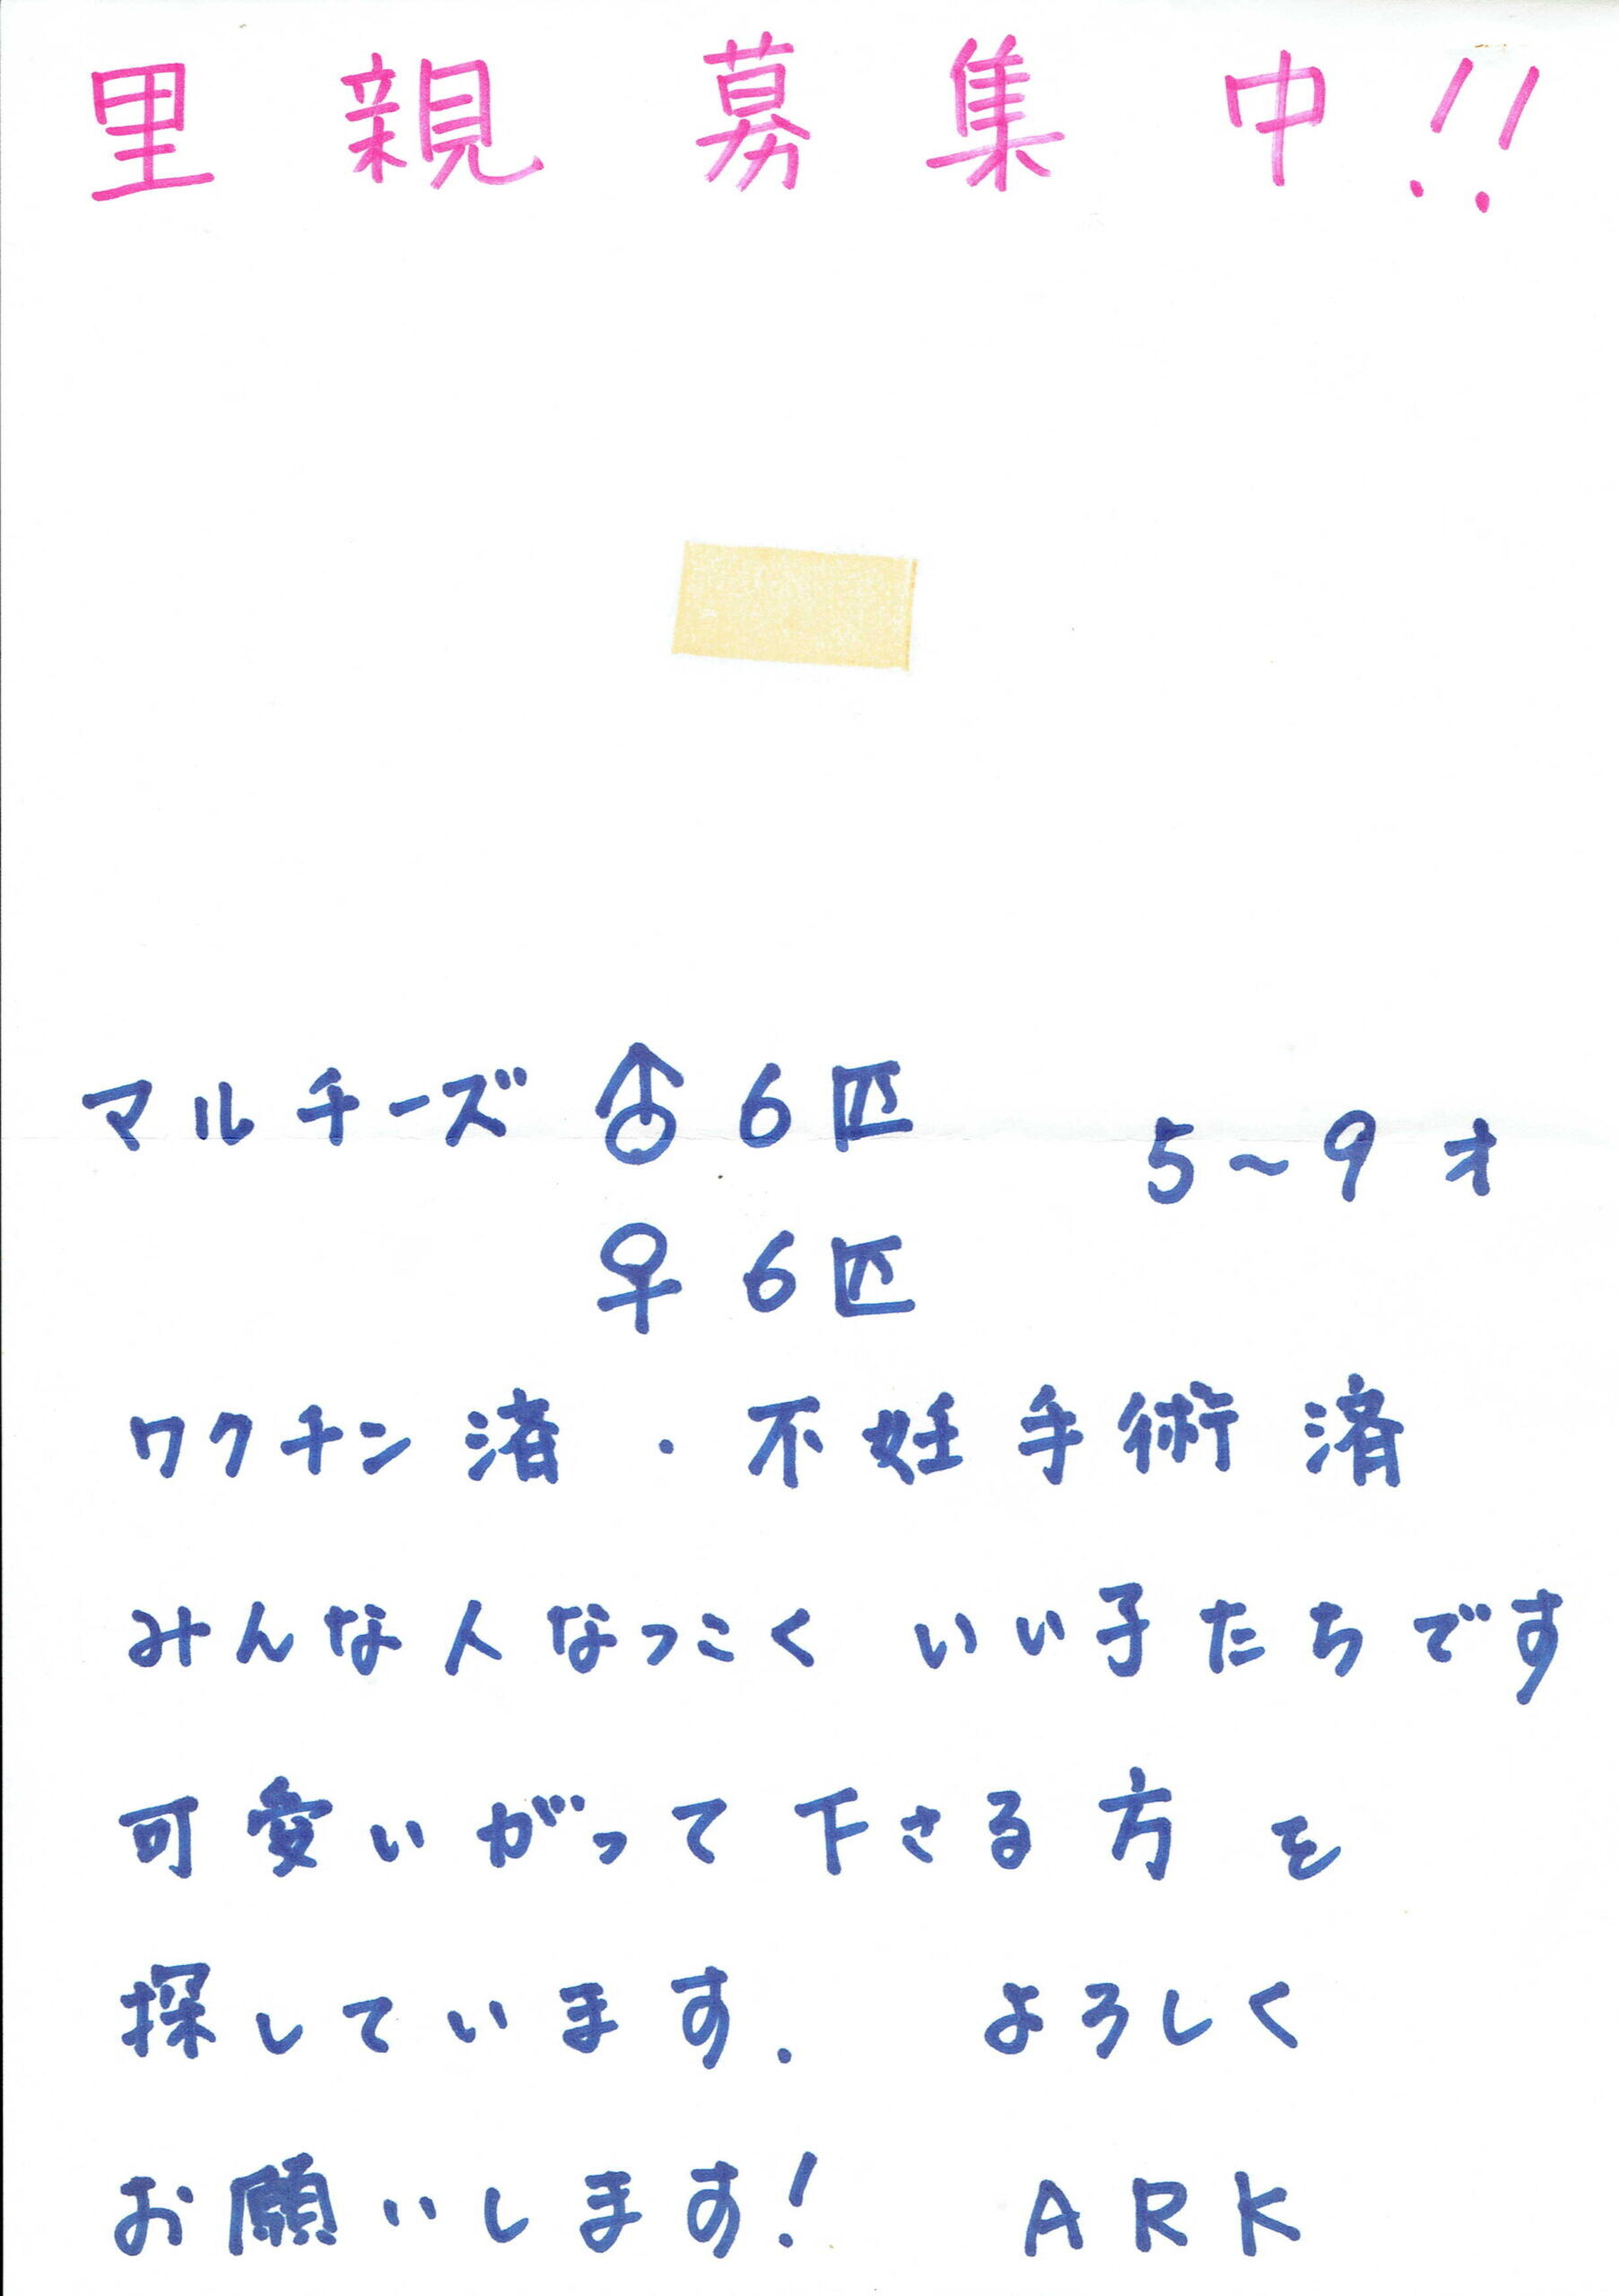 里親募集中!!
マルチーズ ♂ 6匹 5～9才
♀ 6匹
ワクチン済・不妊手術済
みんな人なっこく いい子たちです
可愛いがって下さる方を
探しています. よろしく
お願いします! ARK